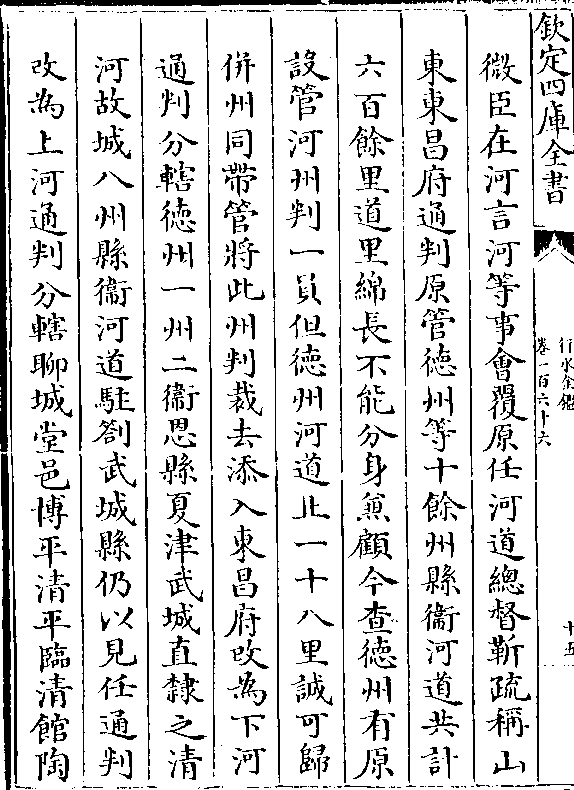 欽定四庫全書
行水金鑑
卷一百六十六
十五
微臣在河言河等事會覆原任河道總督靳疏稱山
東東昌府通判原管德州等十餘州縣衞河道共計
六百餘里道里綿長不能分身兼顧今查德州有原
設管河州判一員但德州河道止一十八里誠可歸
併州同帶管將此州判裁去添入東昌府改為下河
通判分轄德州一州二衞恩縣夏津武城直隸之清
河故城八州縣衞河道駐劄武城縣仍以見任通判
改為上河通判分轄聊城堂邑博平清平臨清館陶